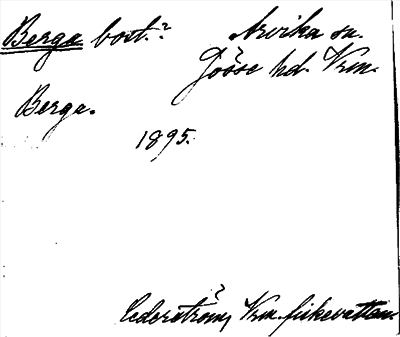 Berga bost.? Arvika sn.
Jösse hd. Vrm.
Berga.
1895.
Cederström, Vrm. fiskevatten